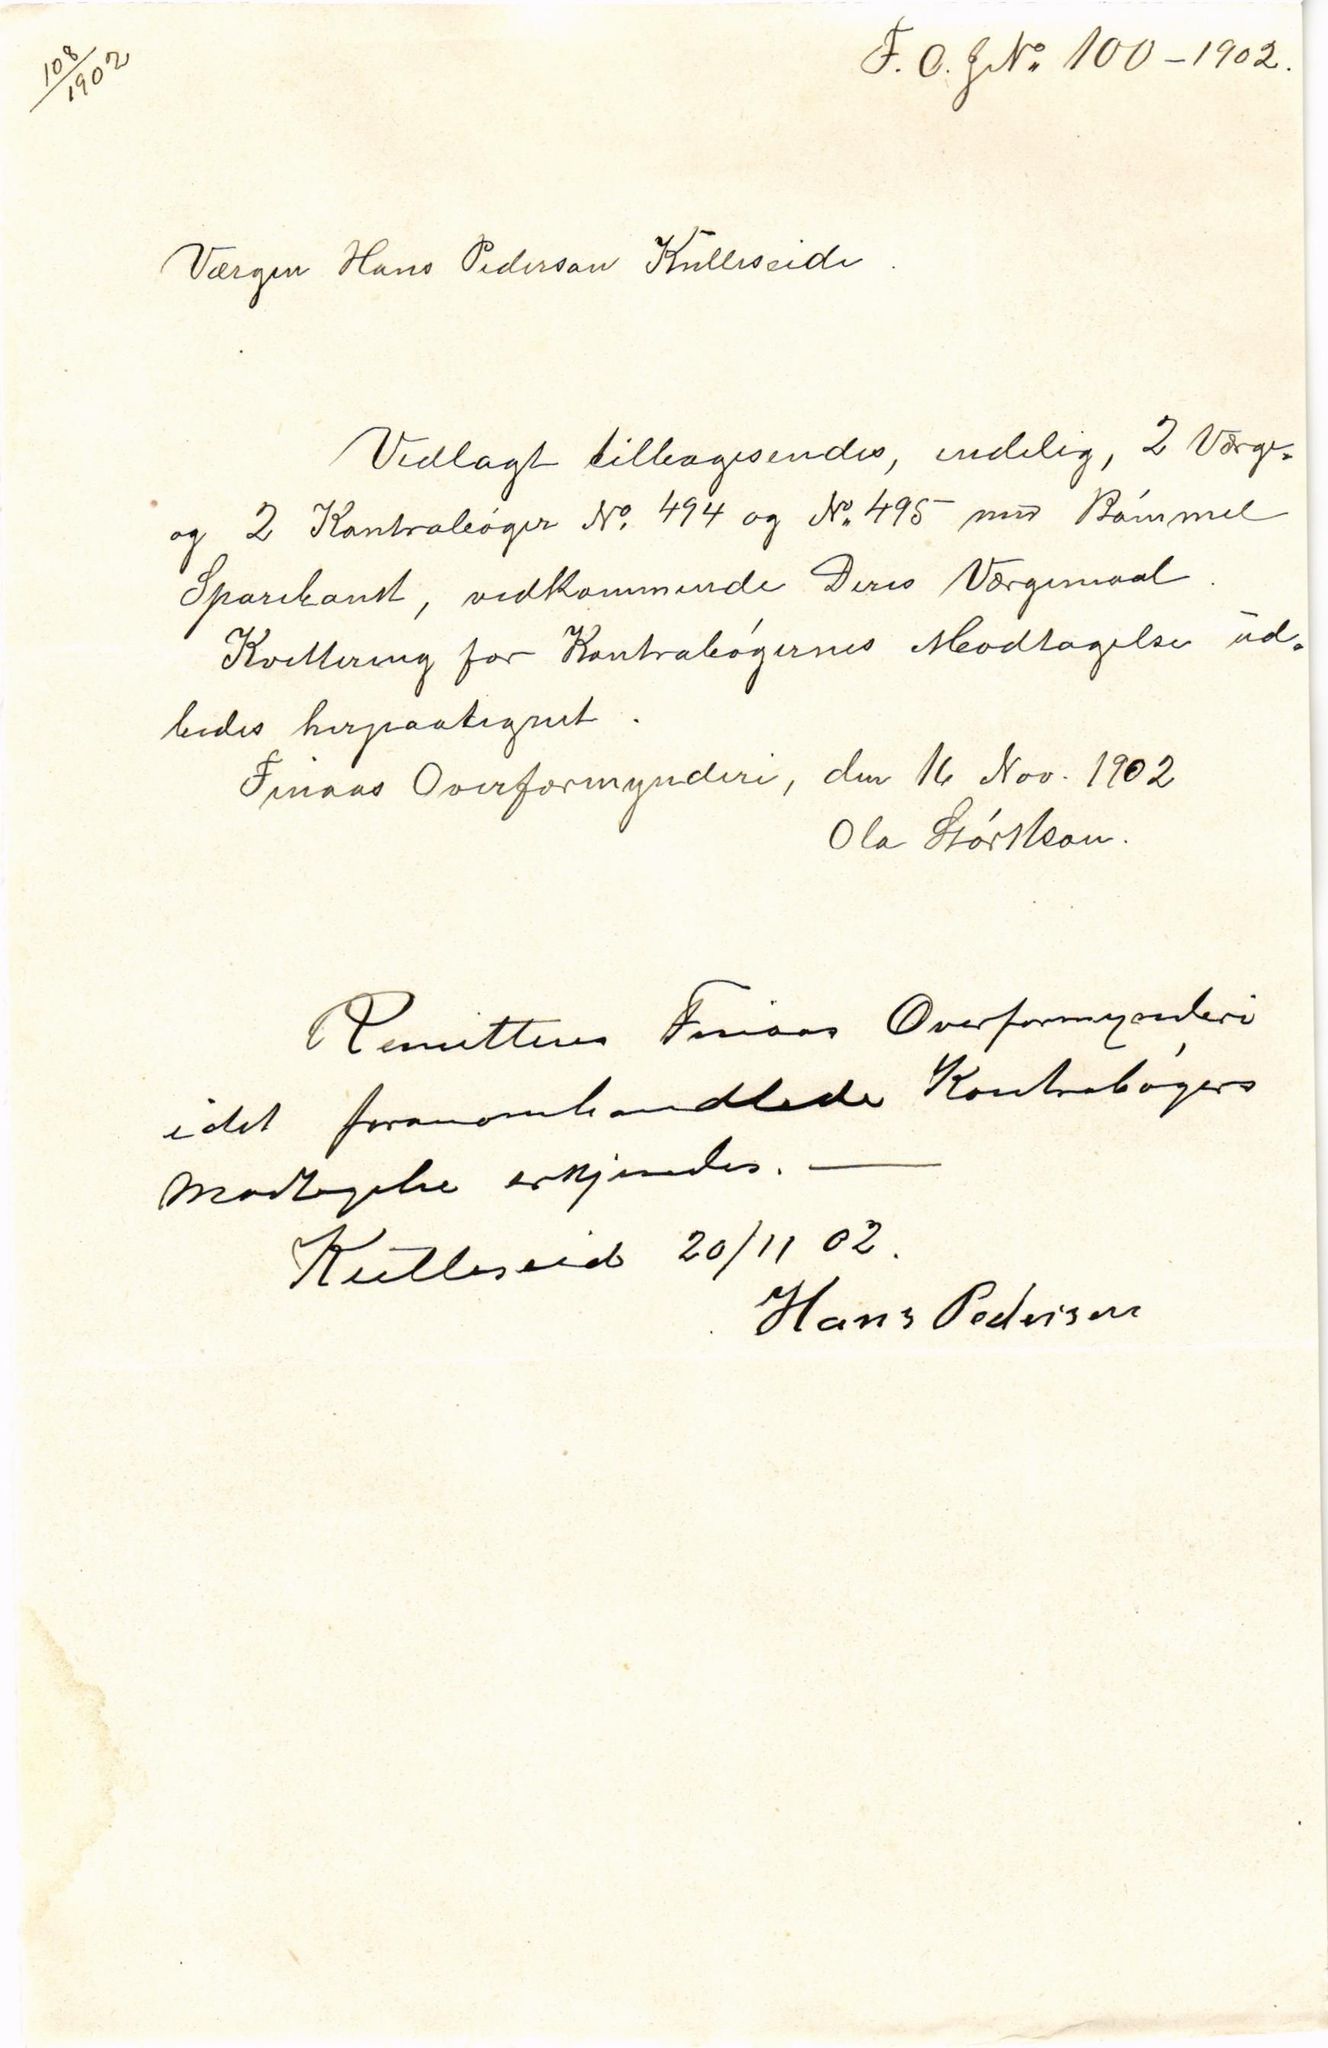 108/1902
F. O. J No. 100 - 1902.
Værgen Hans Pederson Kulleseide.
Vedlagt tilbagesendes, endelig, 2 Værge-
og 2 Kontrabøger No. 494 og No. 495 med Bømmel
Sparebank, vedkommende Deres Værgemaal.
Kvittering for Kontrabøgernes Modtagelse ud-
bedes herpaategnet.
Finaas Overformynderi, den 16 Nov. 1902
Ola
Remitteres Finaas Overformynderi
idet foranomhandlede Kontrabøgers
Modtagelse erkjendes. —
Kulleseid 20/11 02.
Hans Pedersen